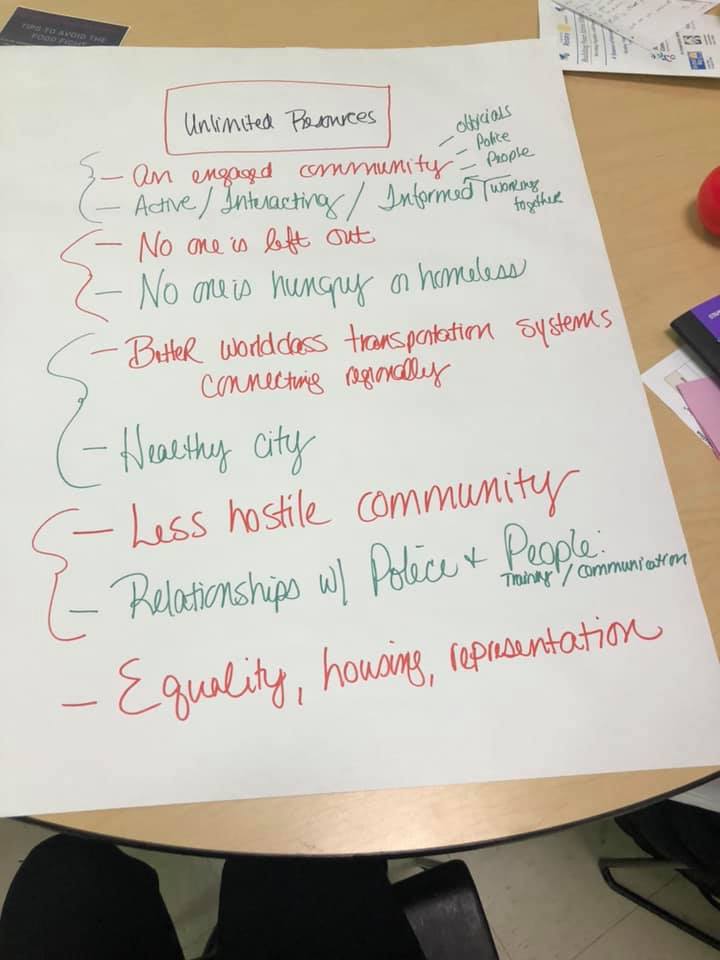 TIPS TO AVOID THE
FOOD FIGHT
Unlimited Resources
— An engaged community
- Officials
- Police
- People
— Active / Interacting / Informed | working
together
— No one is left out
— No one is hungry or homeless
— Better worldclass transportation systems
connecting regionally
— Healthy city
— Less hostile community
— Relationships w/ Police + People:
Training / communication
— Equality, housing, representation